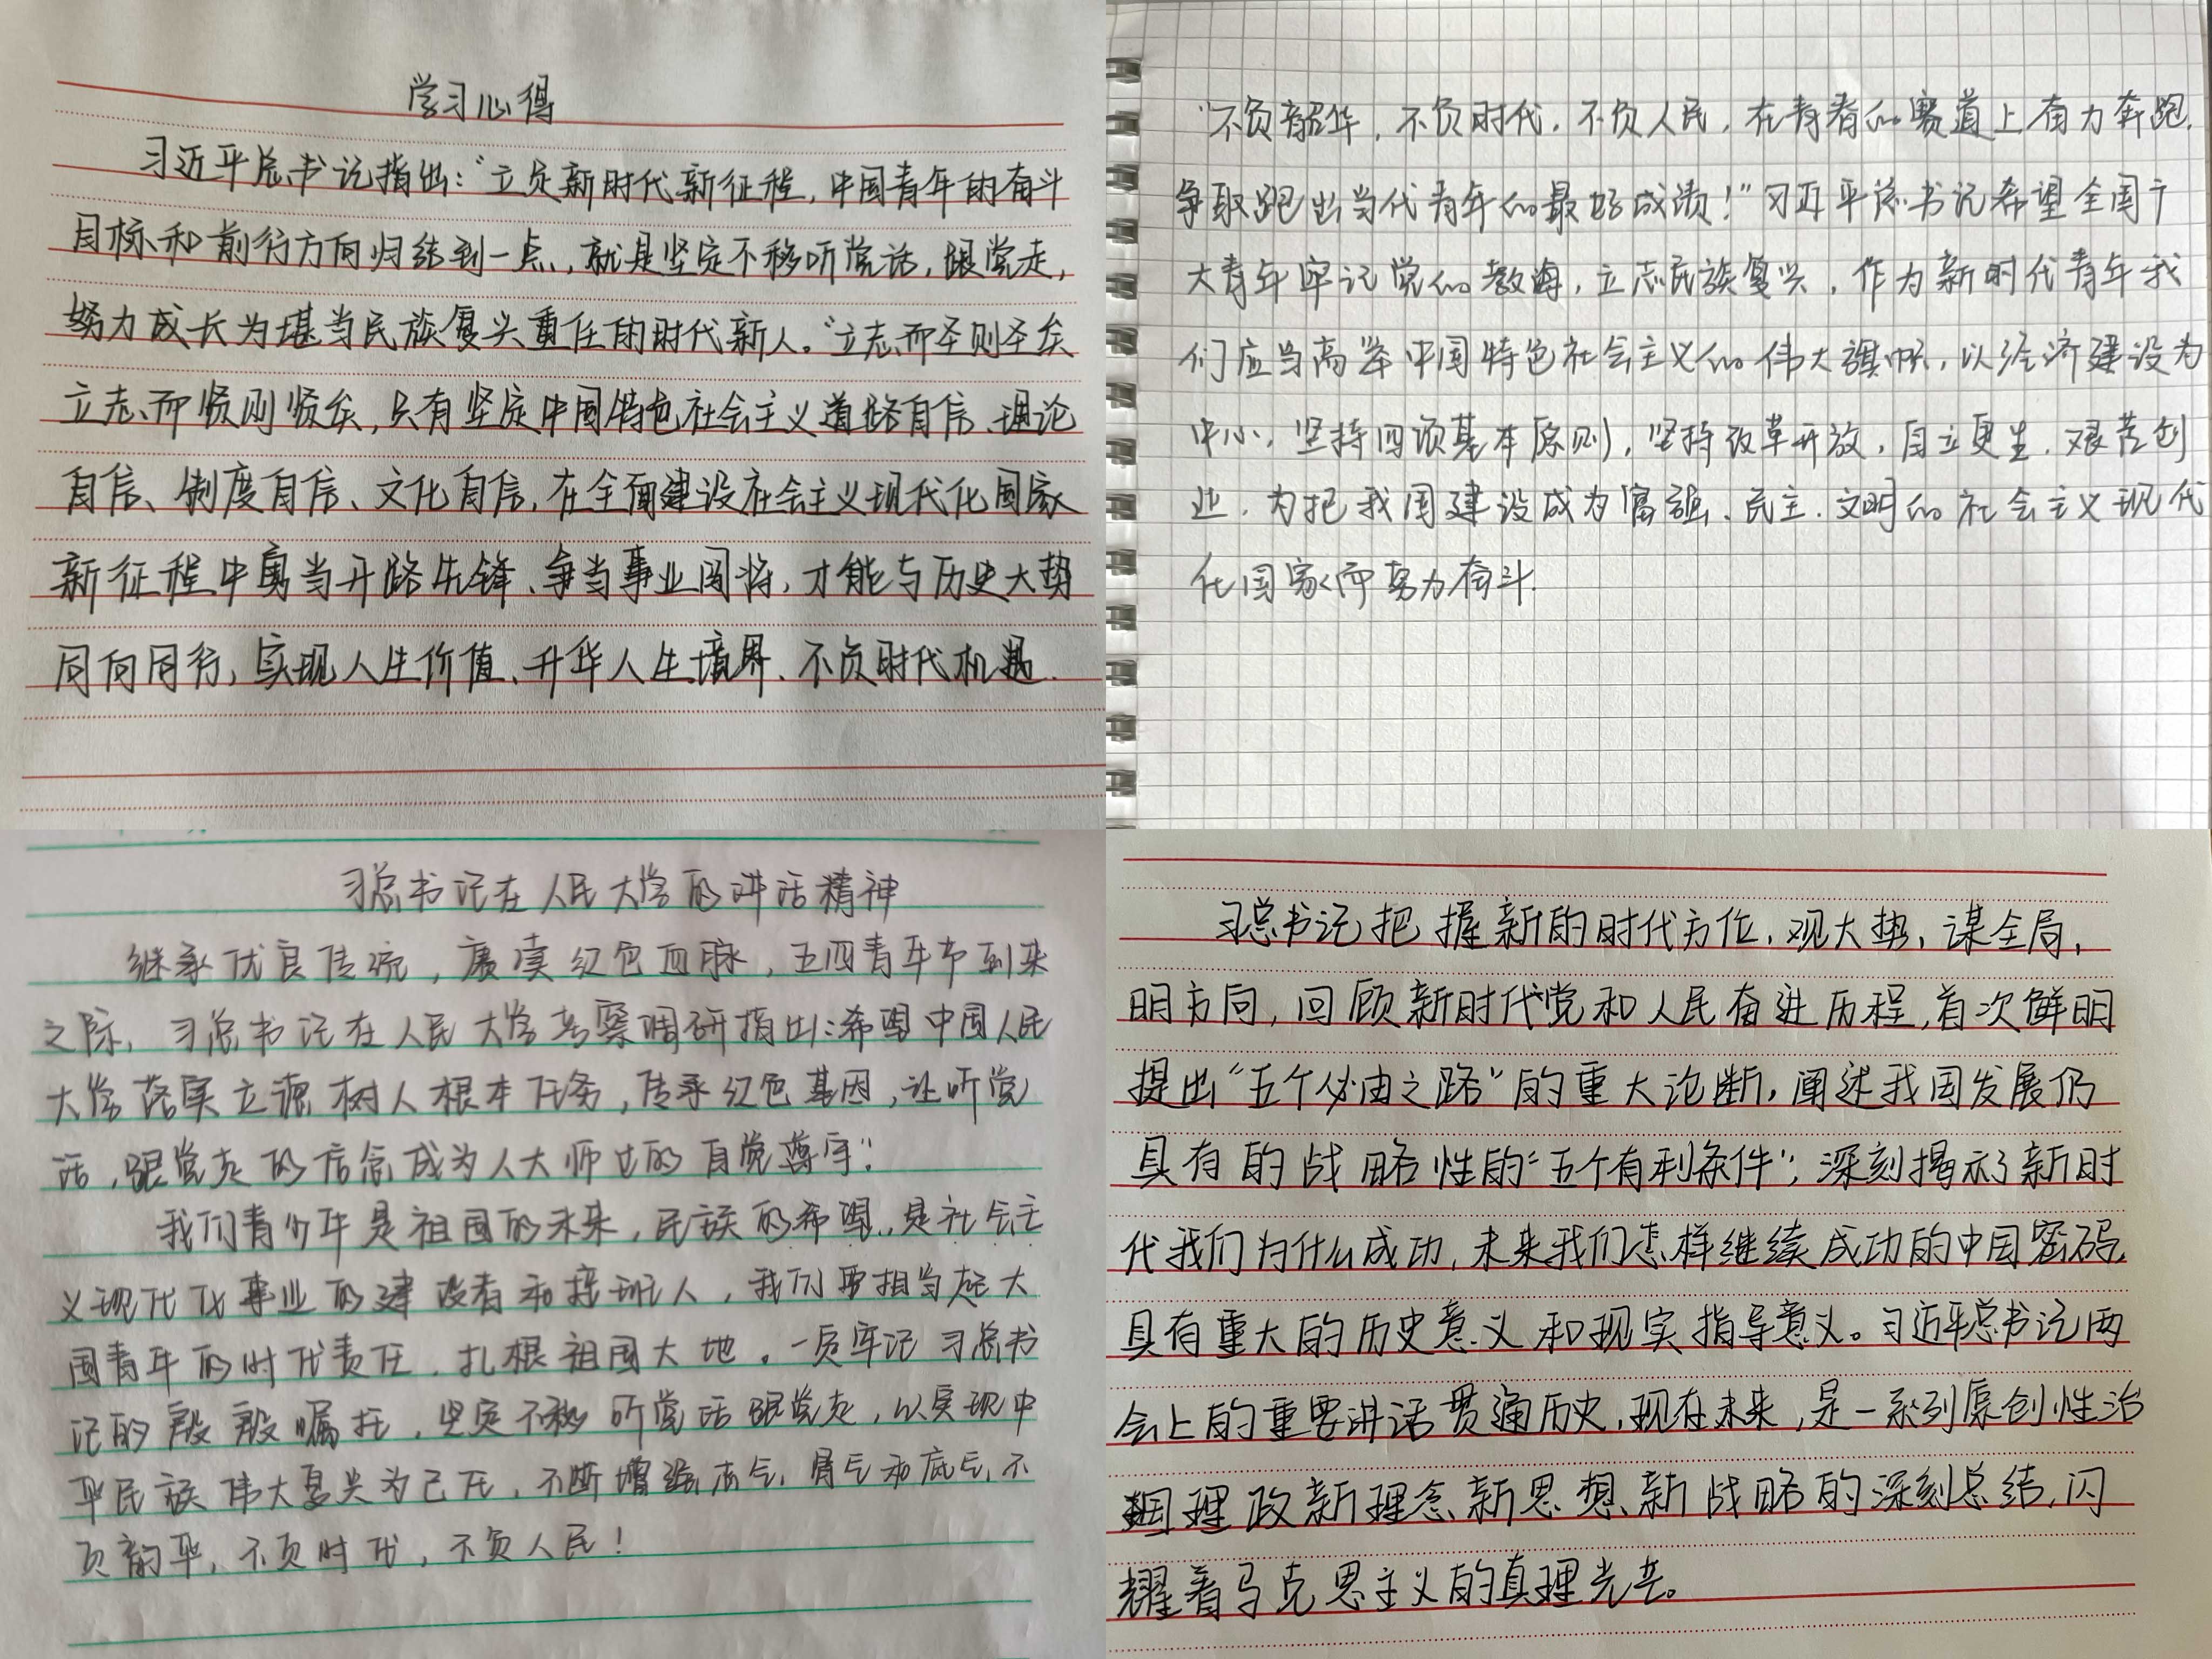 学习心得
习近平总书记指出:“立足新时代新征程,中国青年的奋斗
目标和前行方向归结到一点,就是坚定不移听党话,跟党走,
努力成长为堪当民族复兴重任的时代新人。“立志而圣则圣矣
立志而贤则贤矣,只有坚定中国特色社会主义道路自信、理论
自信、制度自信、文化自信,在全面建设社会主义现代化国家
新征程中勇当开路先锋、争当事业闯将,才能与历史大势
同向同行,实现人生价值、升华人生境界、不负时代机遇.
“不负韶华,不负时代,不负人民,在青春的赛道上奋力奔跑,
争取跑出当代青年的最好成绩!”习近平总书记希望全国广
大青年牢记党的教诲,立志民族复兴,作为新时代青年我
们应当高举中国特色社会主义的伟大旗帜,以经济建设为
中心,坚持四项基本原则,坚持改革开放,自立更生,艰苦创
业,为把我国建设成为富强、民主、文明的社会主义现代
化国家而努力奋斗.
习总书记在人民大学的讲话精神
继承优良传统,赓续红色血脉,五四青年节到来
之际,习总书记在人民大学考察调研指出:希望中国人民
大学落实立德树人根本任务,传承红色基因,让听党
话,跟党走的信念成为人大师生的自觉遵守”.
我们青少年是祖国的未来,民族的希望,是社会主
义现代化事业的建设者和接班人,我们要担当起大
国青年的时代责任,扎根祖国大地。一定牢记习总书
记的殷殷嘱托,坚定不移听党话跟党走,以实现中
华民族伟大复兴为己任,不断增强志气,骨气和底气,不
负韵华,不负时代,不负人民!
习总书记把握新的时代方位,观大势,谋全局,
明方向,回顾新时代党和人民奋进历程,首次鲜明
提出“五个必由之路”的重大论断,阐述我国发展仍
具有的战略性的“五个有利条件”,深刻揭示了新时
代我们为什么成功,未来我们怎样继续成功的中国密码,
具有重大的历史意义和现实指导意义。习近平总书记两
会上的重要讲话贯通历史,现在未来,是一系列原创性治
国理政新理念、新思想、新战略的深刻总结,闪
耀着马克思主义的真理光芒。